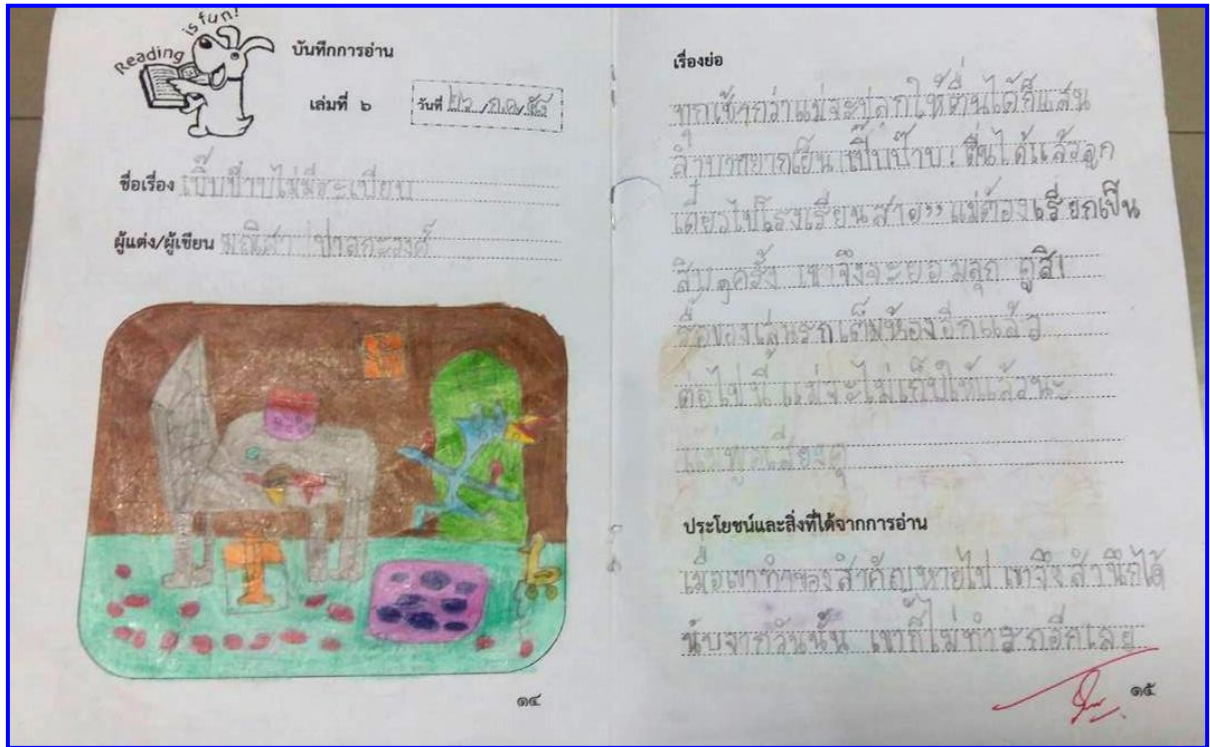 Reading is fun!
บันทึกการอ่าน
เล่มที่ ๖
วันที่ ๒๖ /ก.ค/ ๕๘
ชื่อเรื่อง เปิ๊บป๊าบไม่มีระเบียบ
ผู้แต่ง/ผู้เขียน มณิสา ปาลกะวงศ์
๑๔
เรื่องย่อ
ทุกเช้ากว่าแม่จะปลุกให้ตื่นได้ก็แสน
ลำบากยากเย็น เปิ๊บป๊าบ! ตื่นได้แล้วลูก
เดี๋ยวไปโรงเรียนสาย" แม่ต้องเรียกเป็น
สิบๆครั้ง เขาจึงจะยอมลุก ดูสิ!
รื้อของเล่นรกเต็มห้องอีกแล้ว
ต่อไปนี้ แม่จะไม่เก็บให้แล้วนะ
แม่พูดเสียงดุ
ประโยชน์และสิ่งที่ได้จากการอ่าน
เมื่อเขาทำของสำคัญหายไป เขาจึงสำนึกได้
นับจากวันนั้น เขาก็ไม่ทำรกอีกเลย
๑๕